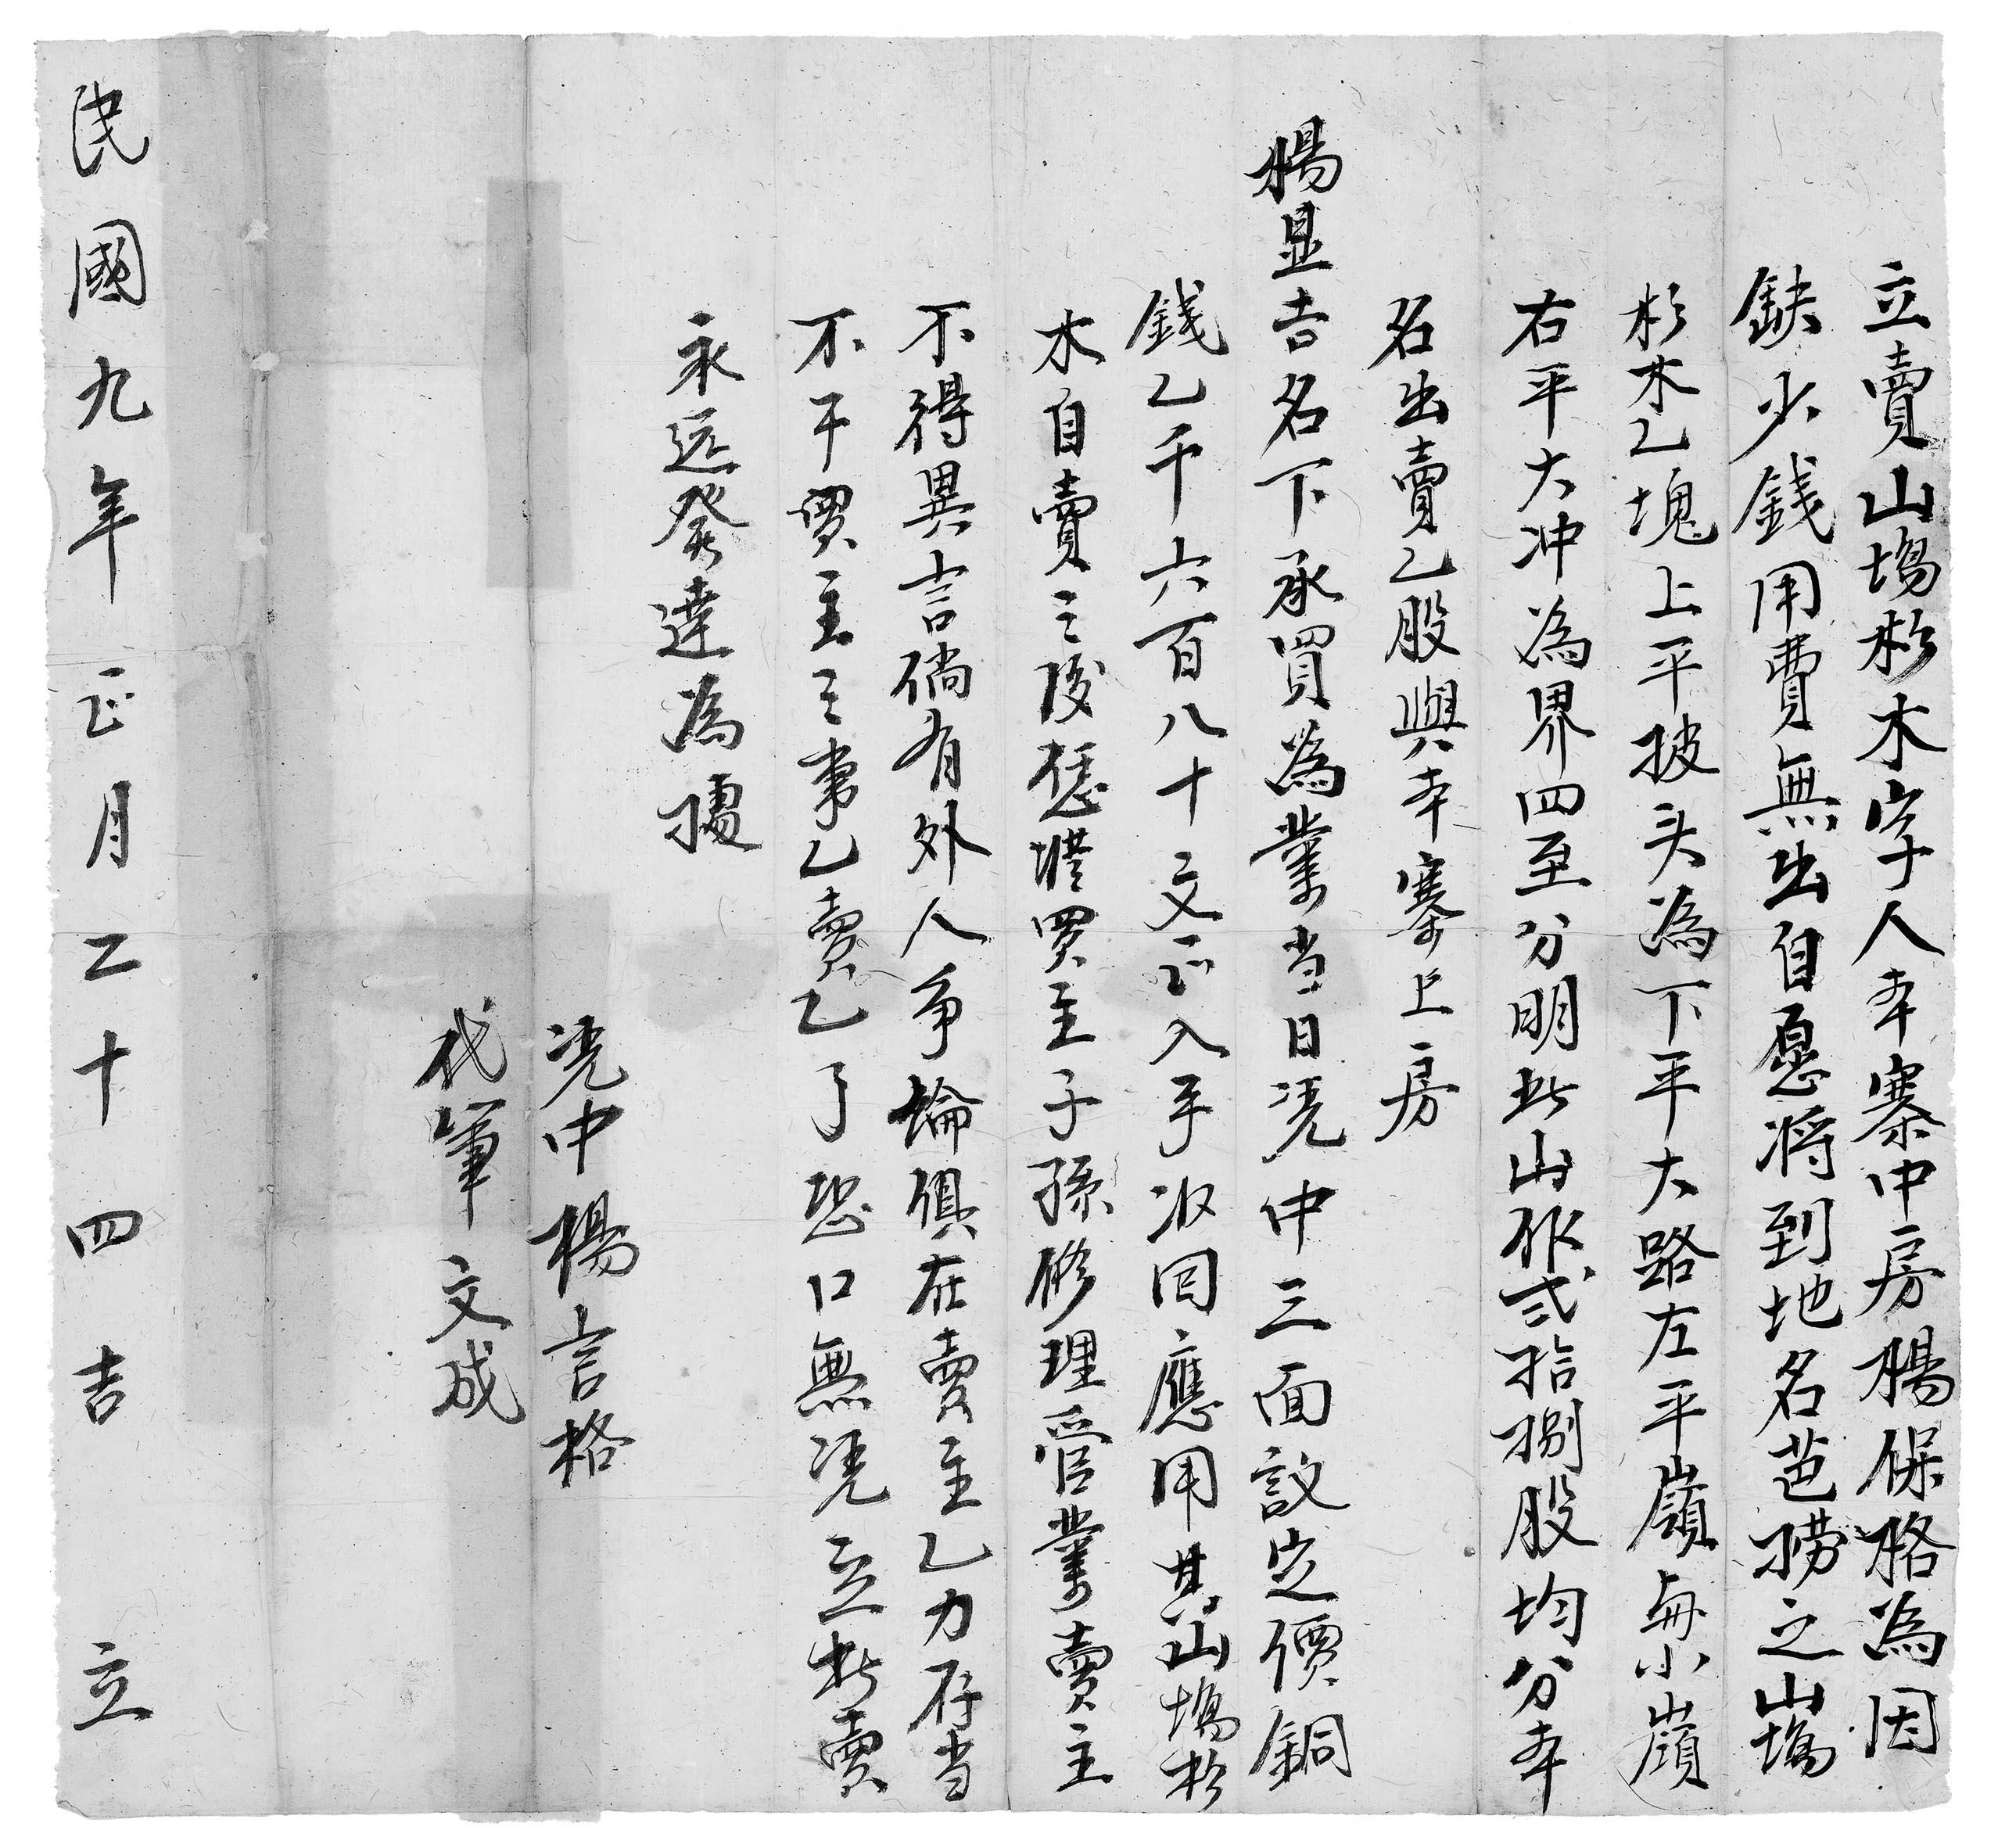 立賣山塲杉木字人本寨中房楊保格為因
缺少錢用費無出自愿将到地名芭撈之山塲
杉木乙塊上平披头為下平大路左平嶺每小嶺
右平大冲為界四至分明此山作弍拾捌股均分本
名出賣乙股與本寨上房
楊显吉名下承買為業当日凴中三面議定價銅
錢乙千六百八十文正入手收回應用其山塲杉
木自賣之後恁凴買主子孫修理管業賣主
不得異言倘有外人争論俱在賣主乙力存当
不干買主之事乙賣乙了恐口無凴立断賣
永远發達為據
凴中楊言格
代筆文成
民國九年正月二十四吉立